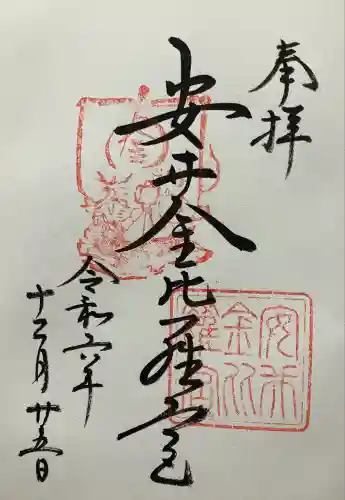 奉拝
安井金比羅宮
令和六年
十二月廿五日